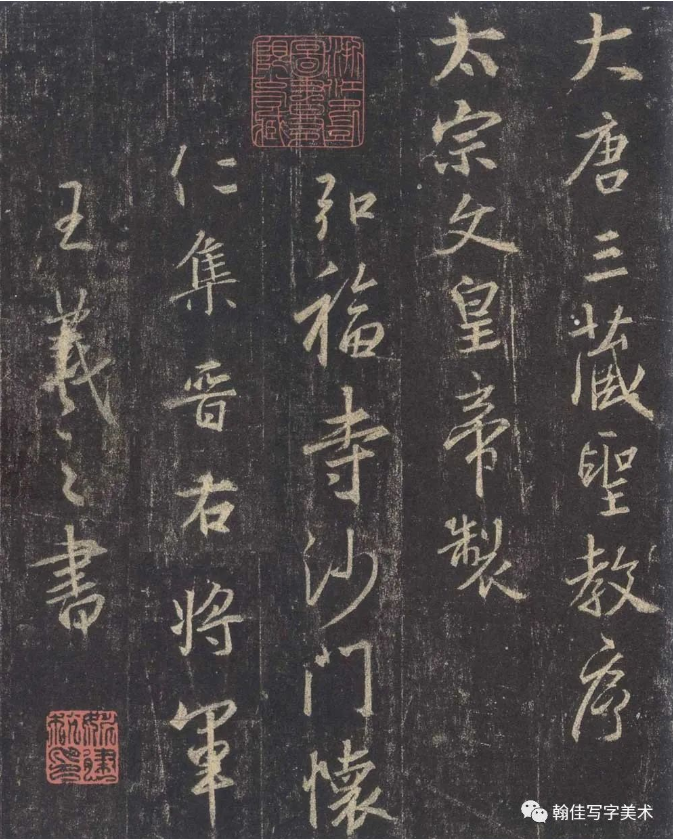 大唐三藏聖教序
太宗文皇帝製
弘福寺沙门懷
仁集晋右將軍
王羲之書
翰佳写字美术